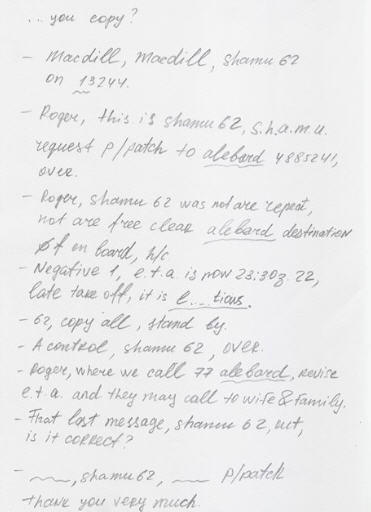 ... you copy?
- Macdill, Macdill, Shamu 62
on 13244.
- Roger, this is shamu 62, s.h.a.m.u.
request p/patch to alebard 4885241,
over.
- Roger, shamu 62 was not are repeat,
not are free clear alebard destination
of on board, h/c
- Negative 1, e.t.a. is now 23:30z. 22,
late take off, it is e...tious.
- 62, copy all, stand by.
- A control, shamu 62, over.
- Roger, where we call 77 alebard, revise
e.t.a. and they may call to wife & family.
- That last message, shamu 62, out,
is it correct?
- , shamu 62, p/patch
thank you very much.